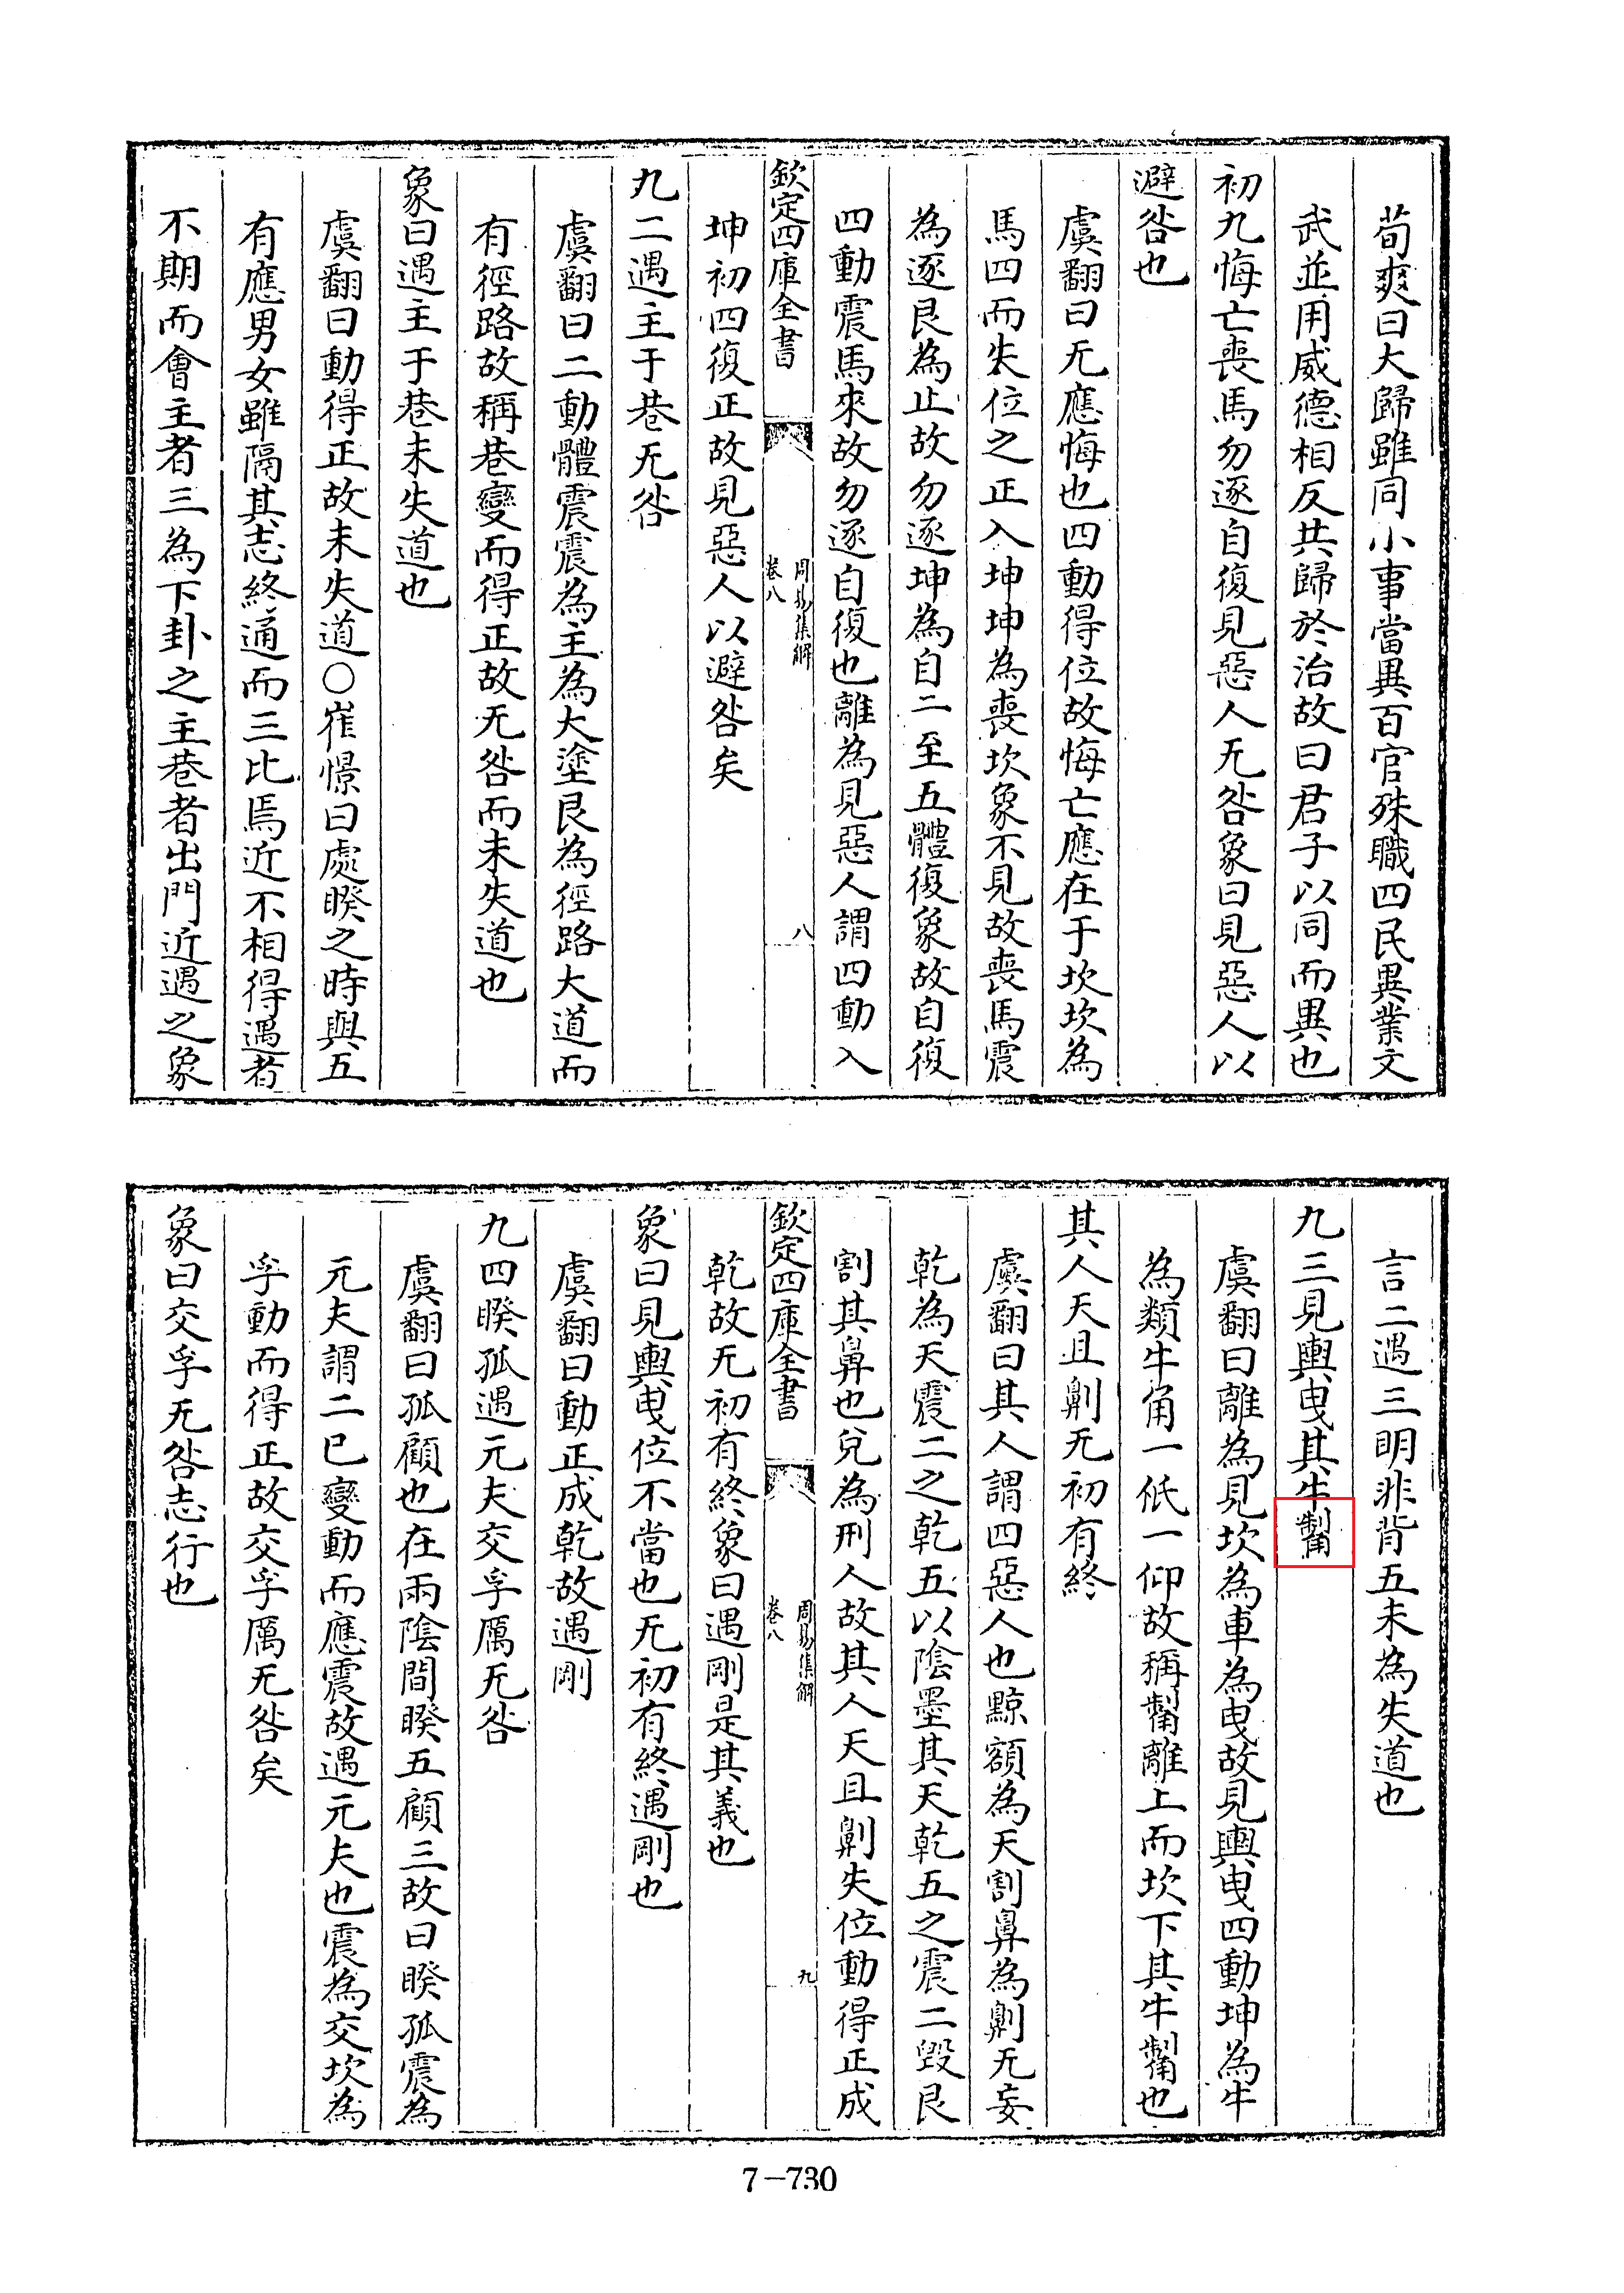 荀爽曰大歸雖同小事當異百官殊職四民異業文
武並用威德相反共歸於治故曰君子以同而異也
初九悔亡喪馬勿逐自復見惡人无咎象曰見惡人以
避咎也
虞翻曰无應悔也四動得位故悔亡應在于坎坎為
馬四而失位之正入坤坤為喪坎象不見故喪馬震
為逐艮為止故勿逐坤為自二至五體復象故自復
四動震馬來故勿逐自復也離為見惡人謂四動入
欽定四庫全書
周易集解
卷八
八
坤初四復正故見惡人以避咎矣
九二遇主于巷无咎
虞翻曰二動體震震為主為大塗艮為徑路大道而
有徑路故稱巷變而得正故无咎而未失道也
象曰遇主于巷未失道也
虞翻曰動得正故未失道○崔憬曰處睽之時與五
有應男女雖隔其志終通而三比焉近不相得遇者
不期而會主者三為下卦之主巷者出門近遇之象
言二遇三明非背五未為失道也
九三見輿曳其牛觢
虞翻曰離為見坎為車為曳故見輿曳四動坤為牛
為類牛角一低一仰故稱觢離上而坎下其牛觢也
其人天且劓无初有終
虞翻曰其人謂四惡人也黥額為天割鼻為劓无妄
乾為天震二之乾五以陰墨其天乾五之震二毀艮
割其鼻也兌為刑人故其人天且劓失位動得正成
欽定四庫全書
周易集解
卷八
九
乾故无初有終象曰遇剛是其義也
象曰見輿曳位不當也无初有終遇剛也
虞翻曰動正成乾故遇剛
九四睽孤遇元夫交孚厲无咎
虞翻曰孤顧也在兩陰間睽五顧三故曰睽孤震為
元夫謂二已變動而應震故遇元夫也震為交坎為
孚動而得正故交孚厲无咎矣
象曰交孚无咎志行也
7-730